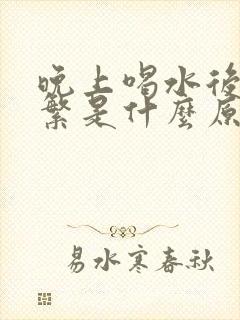 晚上喝水後
繁是什麼原
易水寒春秋